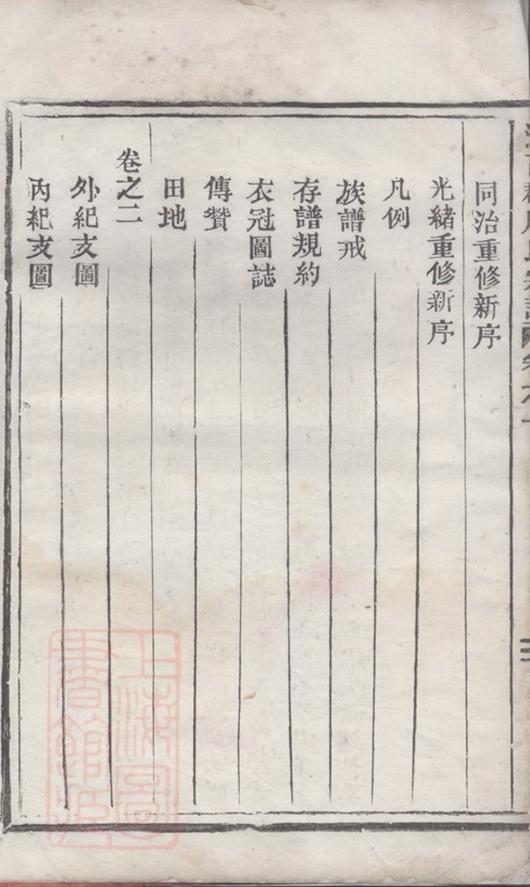 同治重修新序
光緒重修新序
凡例
族譜戒
存譜規約
衣冠圖誌
傳贊
田地
卷之二
外紀支圖
內紀支圖
上海圖
書館藏